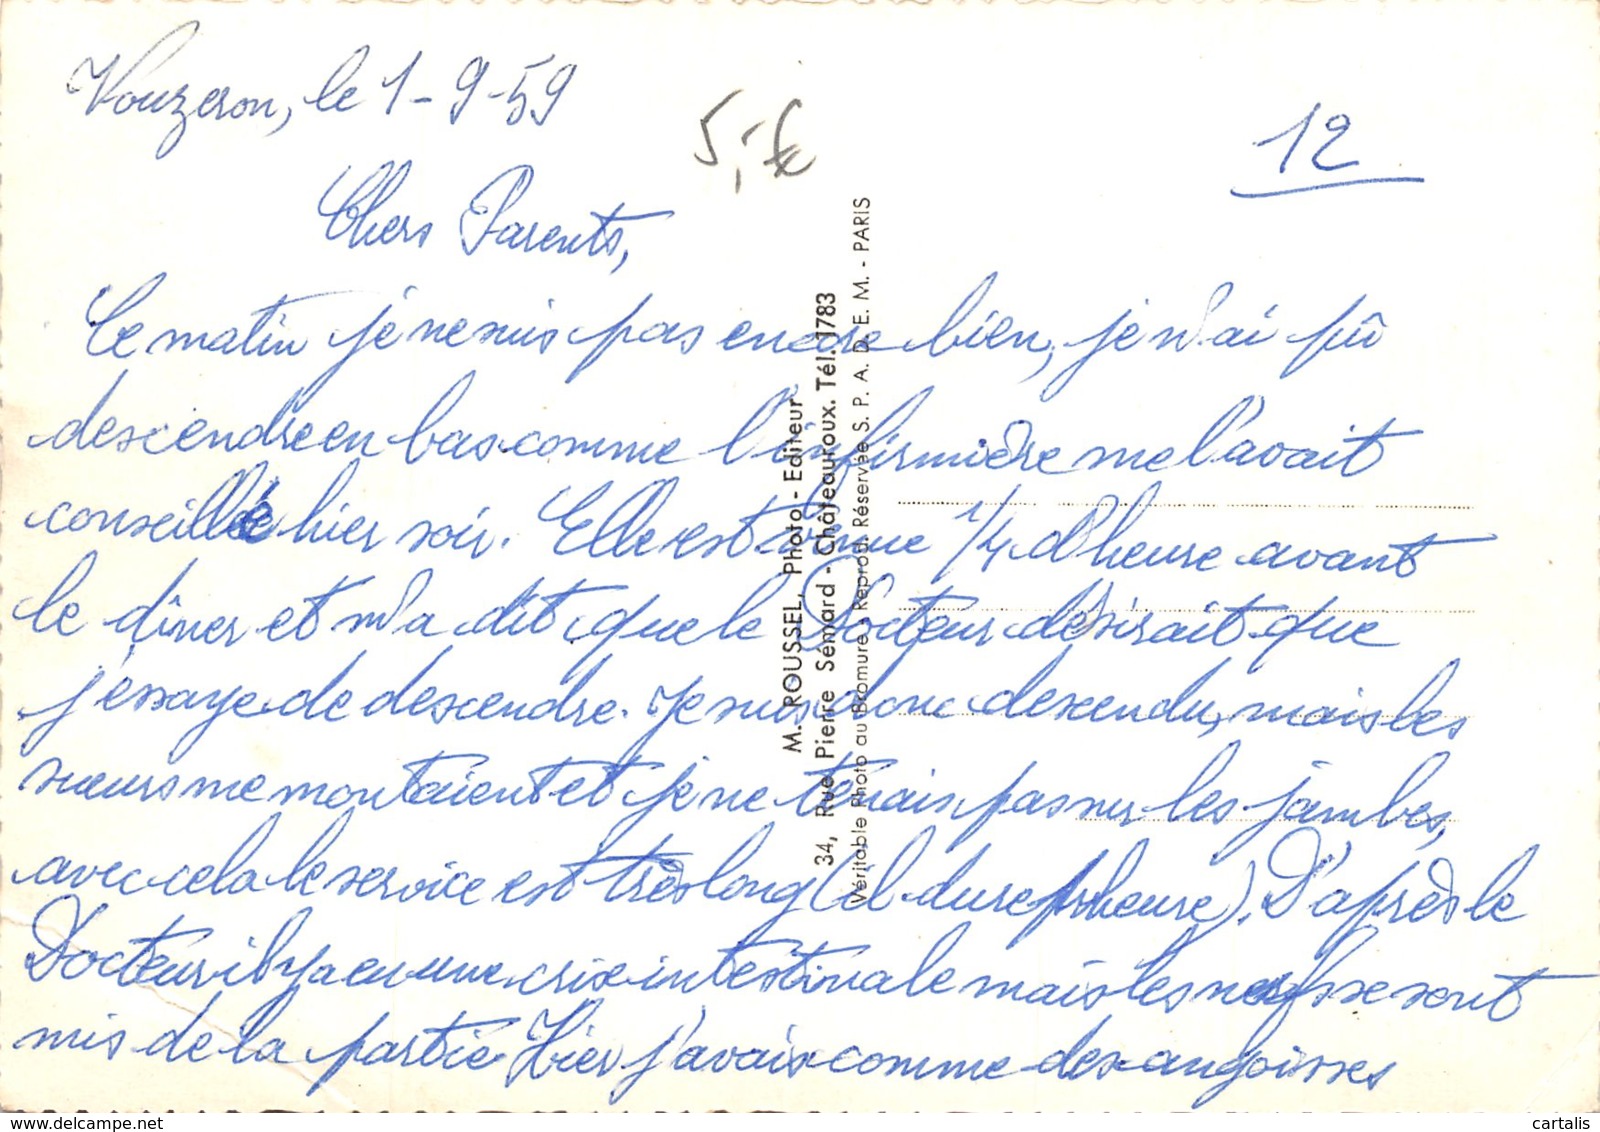 Vouzeron, le 1-9-59
5,-€
12
Chers Parents,
Ce matin je ne suis pas encore bien, je n'ai pû
descendre en bas comme l'infirmière me l'avait
conseillé hier soir. Elle est venue 1/4 d'heure avant
le dîner et m'a dit que le Docteur désirait que
j'essaye de descendre. Je suis donc descendu, mais les
sueurs me montaient et je ne tenais pas sur les jambes,
avec cela le service est très long (il dure 1 heure). D'après le
Docteur il y a eu une crise intestinale mais les nerfs se sont
mis de la partie. Hier j'avais comme des angoisses
M. ROUSSEL, Photo-Editeur
34, Rue Pierre Sémard - Châteauroux. Tél. 1783
Véritable Photo au Bromure - Reprod. Réservée S. P. A. D. E. M. - PARIS
www.delcampe.net
cartalis